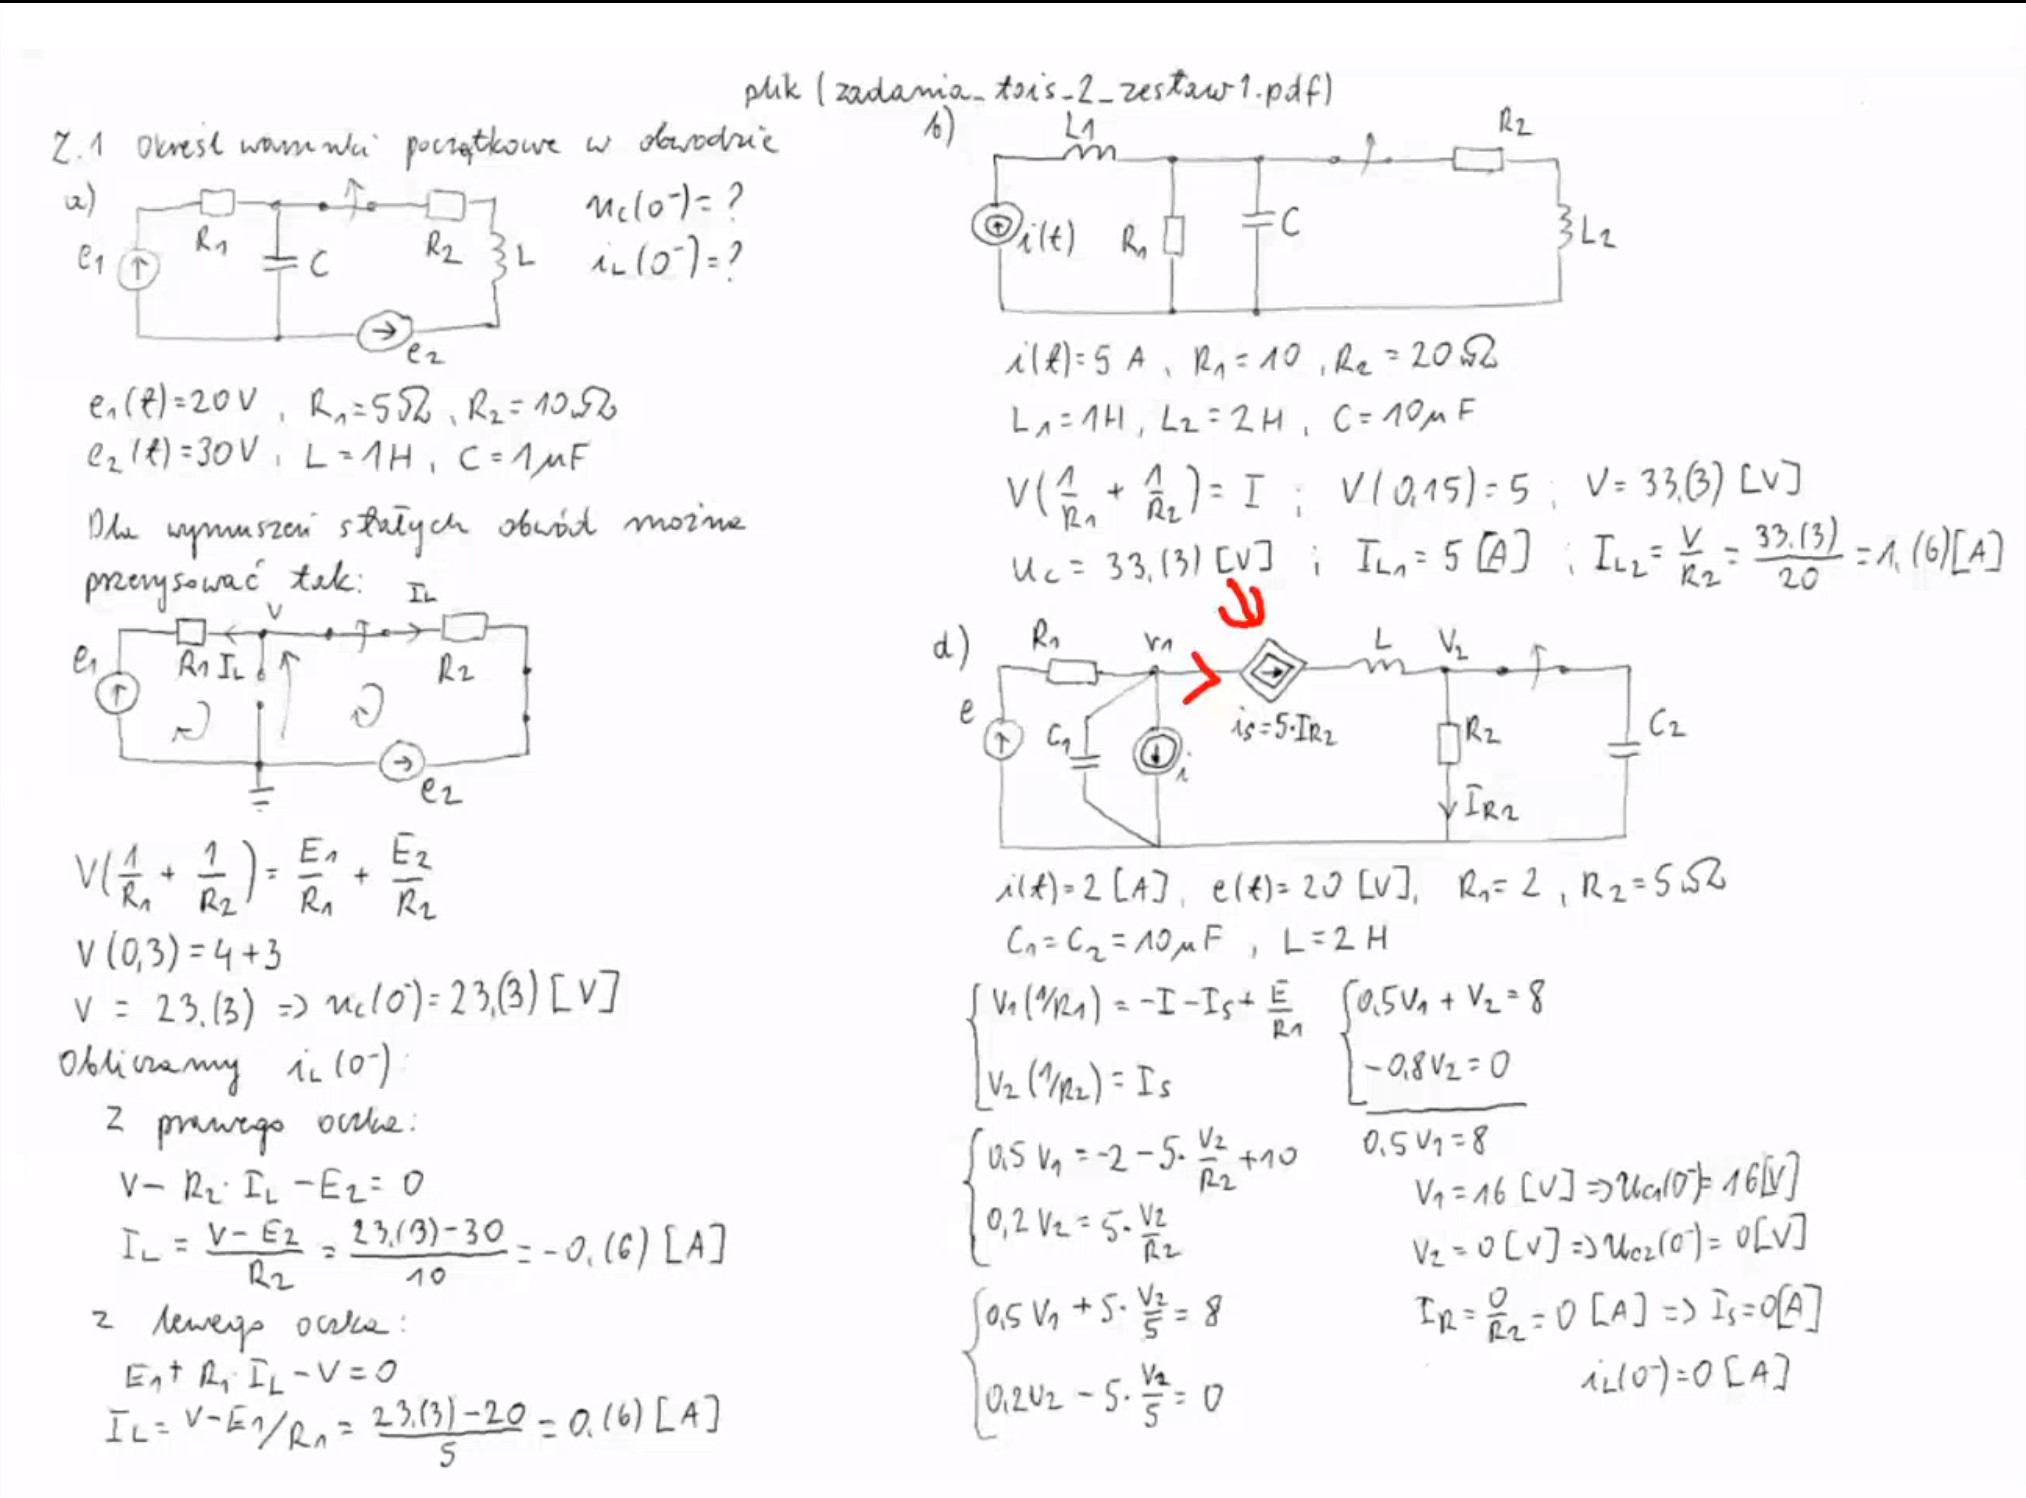 plik (zadania_tois_2_zestaw1.pdf)
Z.1 Określ warunki początkowe w obwodzie
a)
R1
C
R2
L
e1
e2
uc(0⁻)=?
iL(0⁻)=?
e1(t)=20V , R1=5Ω , R2=10Ω
e2(t)=30V , L=1H , C=1μF
Dla wymuszeń stałych obwód można
przerysować tak:
V
IL
e1
R1 IL
R2
e2
V(1/R1 + 1/R2) = E1/R1 + E2/R2
V(0,3)=4+3
V = 23,(3) => uc(0⁻)=23,(3) [V]
Obliczamy iL(0⁻):
Z prawego oczka:
V - R2·IL - E2=0
IL = V-E2/R2 = 23,(3)-30/10 = -0,(6) [A]
Z lewego oczka:
E1+R1·IL-V=0
IL= V-E1/R1 = 23,(3)-20/5 = 0,(6) [A]
b)
L1
R2
i(t)
R1
C
L2
i(t)=5 A , R1=10 , R2=20Ω
L1=1H , L2=2H , C=10μF
V(1/R1 + 1/R2)=I ; V(0,15)=5 ; V=33,(3) [V]
uc=33,(3) [V] ; IL1=5 [A] ; IL2=V/R2=33,(3)/20=1,(6)[A]
d)
R1
V1
L
V2
e
C1
i
is=5·IR2
R2
C2
IR2
i(t)=2 [A], e(t)=20 [V], R1=2 , R2=5Ω
C1=C2=10μF , L=2H
V1(1/R1)=-I-Is+E/R1
V2(1/R2)=Is
0,5V1=-2-5·V2/R2+10
0,2V2=5·V2/R2
0,5V1+5·V2/5=8
0,2V2-5·V2/5=0
0,5V1+V2=8
-0,8V2=0
0,5V1=8
V1=16 [V] => uc1(0⁻)=16[V]
V2=0 [V] => uc2(0⁻)=0[V]
IR=0/R2=0 [A] => Is=0[A]
iL(0⁻)=0 [A]